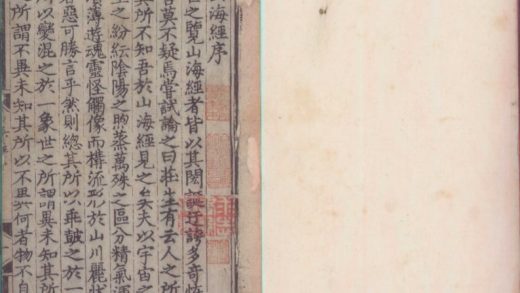 海經序
之覽山海經者皆以其閎誕迂誇多奇怪
言莫不疑焉嘗試論之曰莊生有云人之所
其所不知吾於山海經見之矣夫以宇宙之
生之紛紜陰陽之煦蒸萬殊之區分精氣渾
薄遊魂靈怪觸像而構流形於山川麗狀
者惡可勝言乎然則總其所以乖鼓之於一
所以變混之於一象世之所謂異未知其所
所謂不異未知其所以不異何者物不自